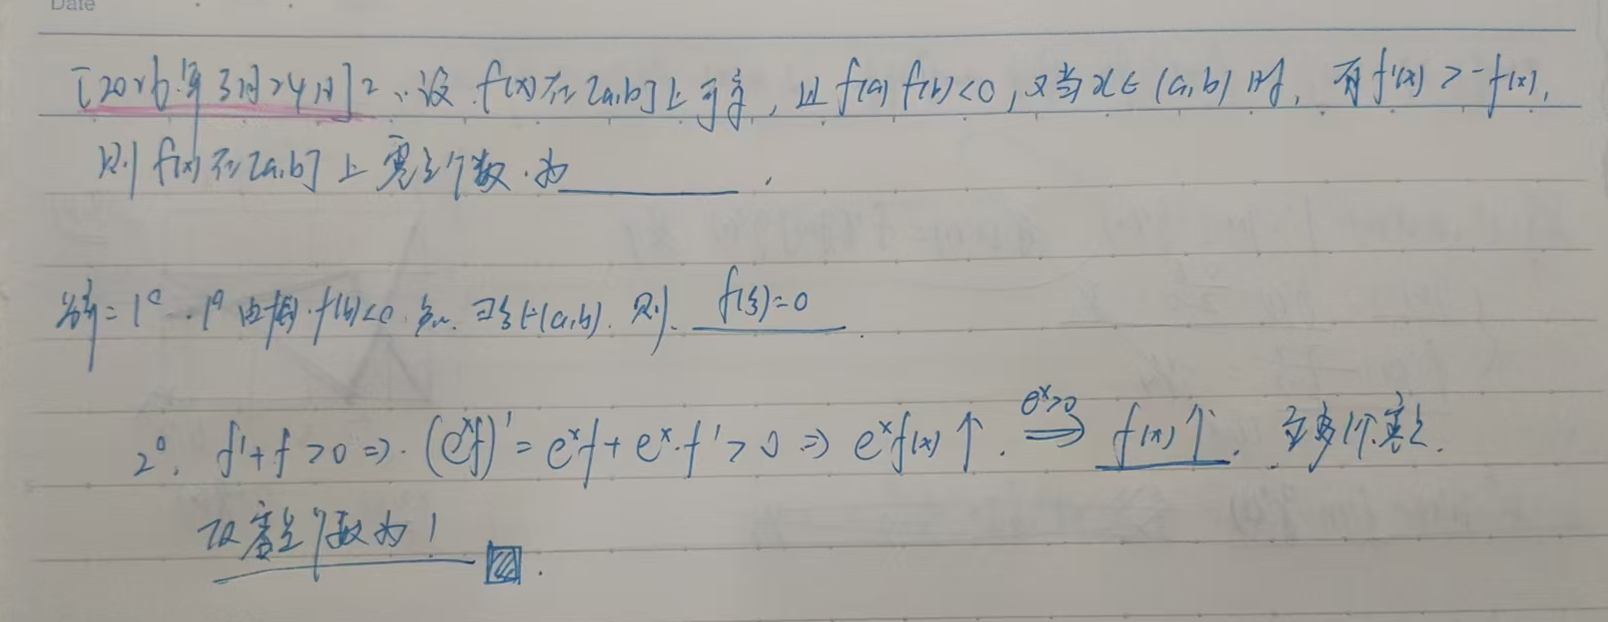 Date
[2026年3月24日] 2、设 f(x)在[a,b]上可导, 且 f(a) f(b)<0, 又当x∈(a,b)时, 有f'(x) > -f(x),
则 f(x)在[a,b]上零点个数为______.
1° 由f(a)·f(b)<0 知 ∃ξ∈(a,b). 则 f(ξ)=0.
2°. f'+f>0 ⇒ (e^x f)' = e^x f + e^x·f' > 0 ⇒ e^x f(x)↑. e^x>0 ⇒ f(x)↑. 至多1个零点.
故零点个数为1